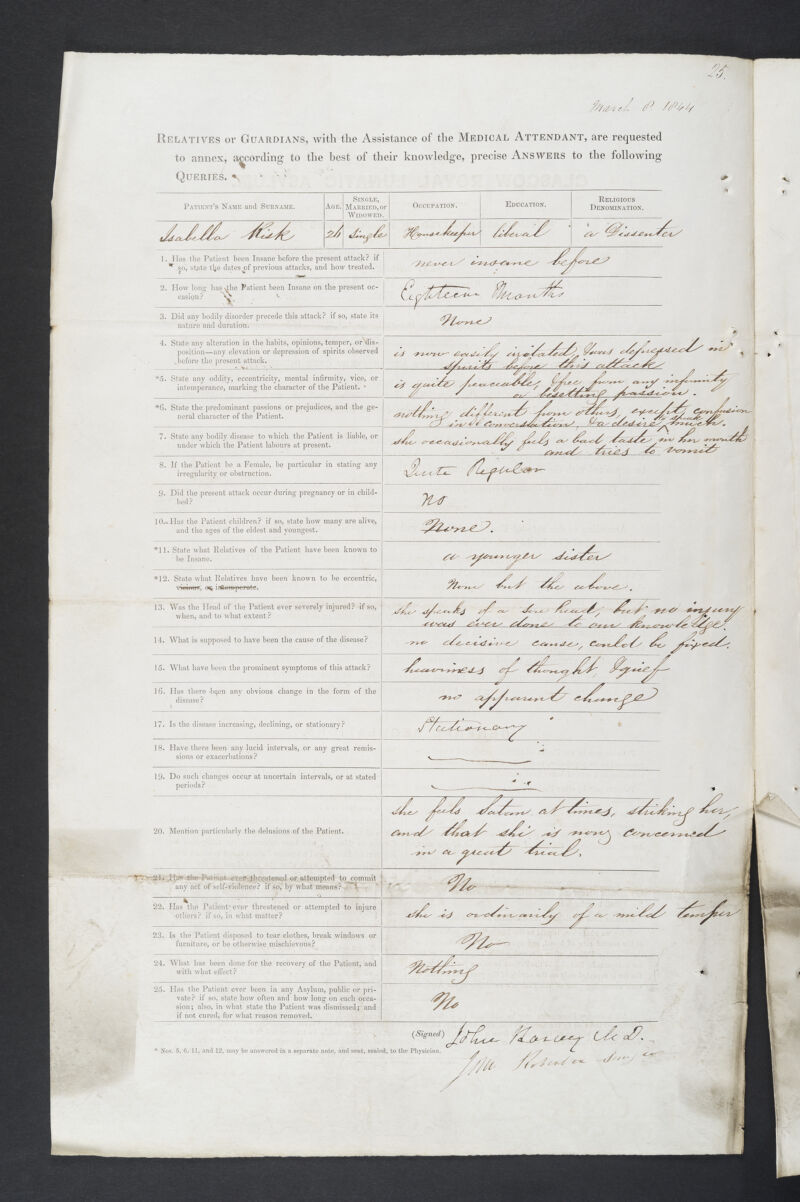 25.
March 6 1844
RELATIVES or GUARDIANS, with the Assistance of the MEDICAL ATTENDANT, are requested
to annex, according to the best of their knowledge, precise ANSWERS to the following
QUERIES.
PATIENT'S NAME and SURNAME.
AGE.
SINGLE, MARRIED, or WIDOWED.
OCCUPATION.
EDUCATION.
RELIGIOUS DENOMINATION.
Isabella Risk
26
Single
Housekeeper
liberal
a Dissenter
1. Has the Patient been Insane before the present attack? if
so, state the dates of previous attacks, and how treated.
never insane before
2. How long has the Patient been Insane on the present oc-
casion?
Eighteen Months
3. Did any bodily disorder precede this attack? if so, state its
nature and duration.
None
4. State any alteration in the habits, opinions, temper, or dis-
position—any elevation or depression of spirits observed
before the present attack.
is now easily irritated, & was depressed in
spirits before this attack
*5. State any oddity, eccentricity, mental infirmity, vice, or
intemperance, marking the character of the Patient.
is quite peaceable, & free from any infirmity
or besetting passion.
*6. State the predominant passions or prejudices, and the ge-
neral character of the Patient.
nothing different from others, except confusion
in conversation, & a desire to speak much.
7. State any bodily disease to which the Patient is liable, or
under which the Patient labours at present.
she occasionally feels a bad taste in her mouth
and tries to vomit
8. If the Patient be a Female, be particular in stating any
irregularity or obstruction.
Quite Regular
9. Did the present attack occur during pregnancy or in child-
bed?
No
10. Has the Patient children? if so, state how many are alive,
and the ages of the eldest and youngest.
None.
*11. State what Relatives of the Patient have been known to
be Insane.
a younger sister
*12. State what Relatives have been known to be eccentric,
vicious, or intemperate.
None but the above.
13. Was the Head of the Patient ever severely injured? if so,
when, and to what extent?
She speaks of a sore head, but no injury
was ever done to our knowledge.
14. What is supposed to have been the cause of the disease?
no decisive cause, could be fixed.
15. What have been the prominent symptoms of this attack?
heaviness of thought, & grief
16. Has there been any obvious change in the form of the
disease?
no apparent change
17. Is the disease increasing, declining, or stationary?
Stationary
18. Have there been any lucid intervals, or any great remis-
sions or exacerbations?
19. Do such changes occur at uncertain intervals, or at stated
periods?
20. Mention particularly the delusions of the Patient.
she feels Satan at times, striking her,
and that she is now concerned
in a great trial.
21. Has the Patient ever threatened or attempted to commit
any act of self-violence? if so, by what means?
No
22. Has the Patient ever threatened or attempted to injure
others? if so, in what matter?
she is ordinarily of a mild temper
23. Is the Patient disposed to tear clothes, break windows or
furniture, or be otherwise mischievous?
No
24. What has been done for the recovery of the Patient, and
with what effect?
Nothing
25. Has the Patient ever been in any Asylum, public or pri-
vate? if so, state how often and how long on each occa-
sion; also, in what state the Patient was dismissed; and
if not cured, for what reason removed.
No
(Signed) John M.D.
* Nos. 5, 6, 11, and 12, may be answered in a separate note, and sent, sealed, to the Physician.